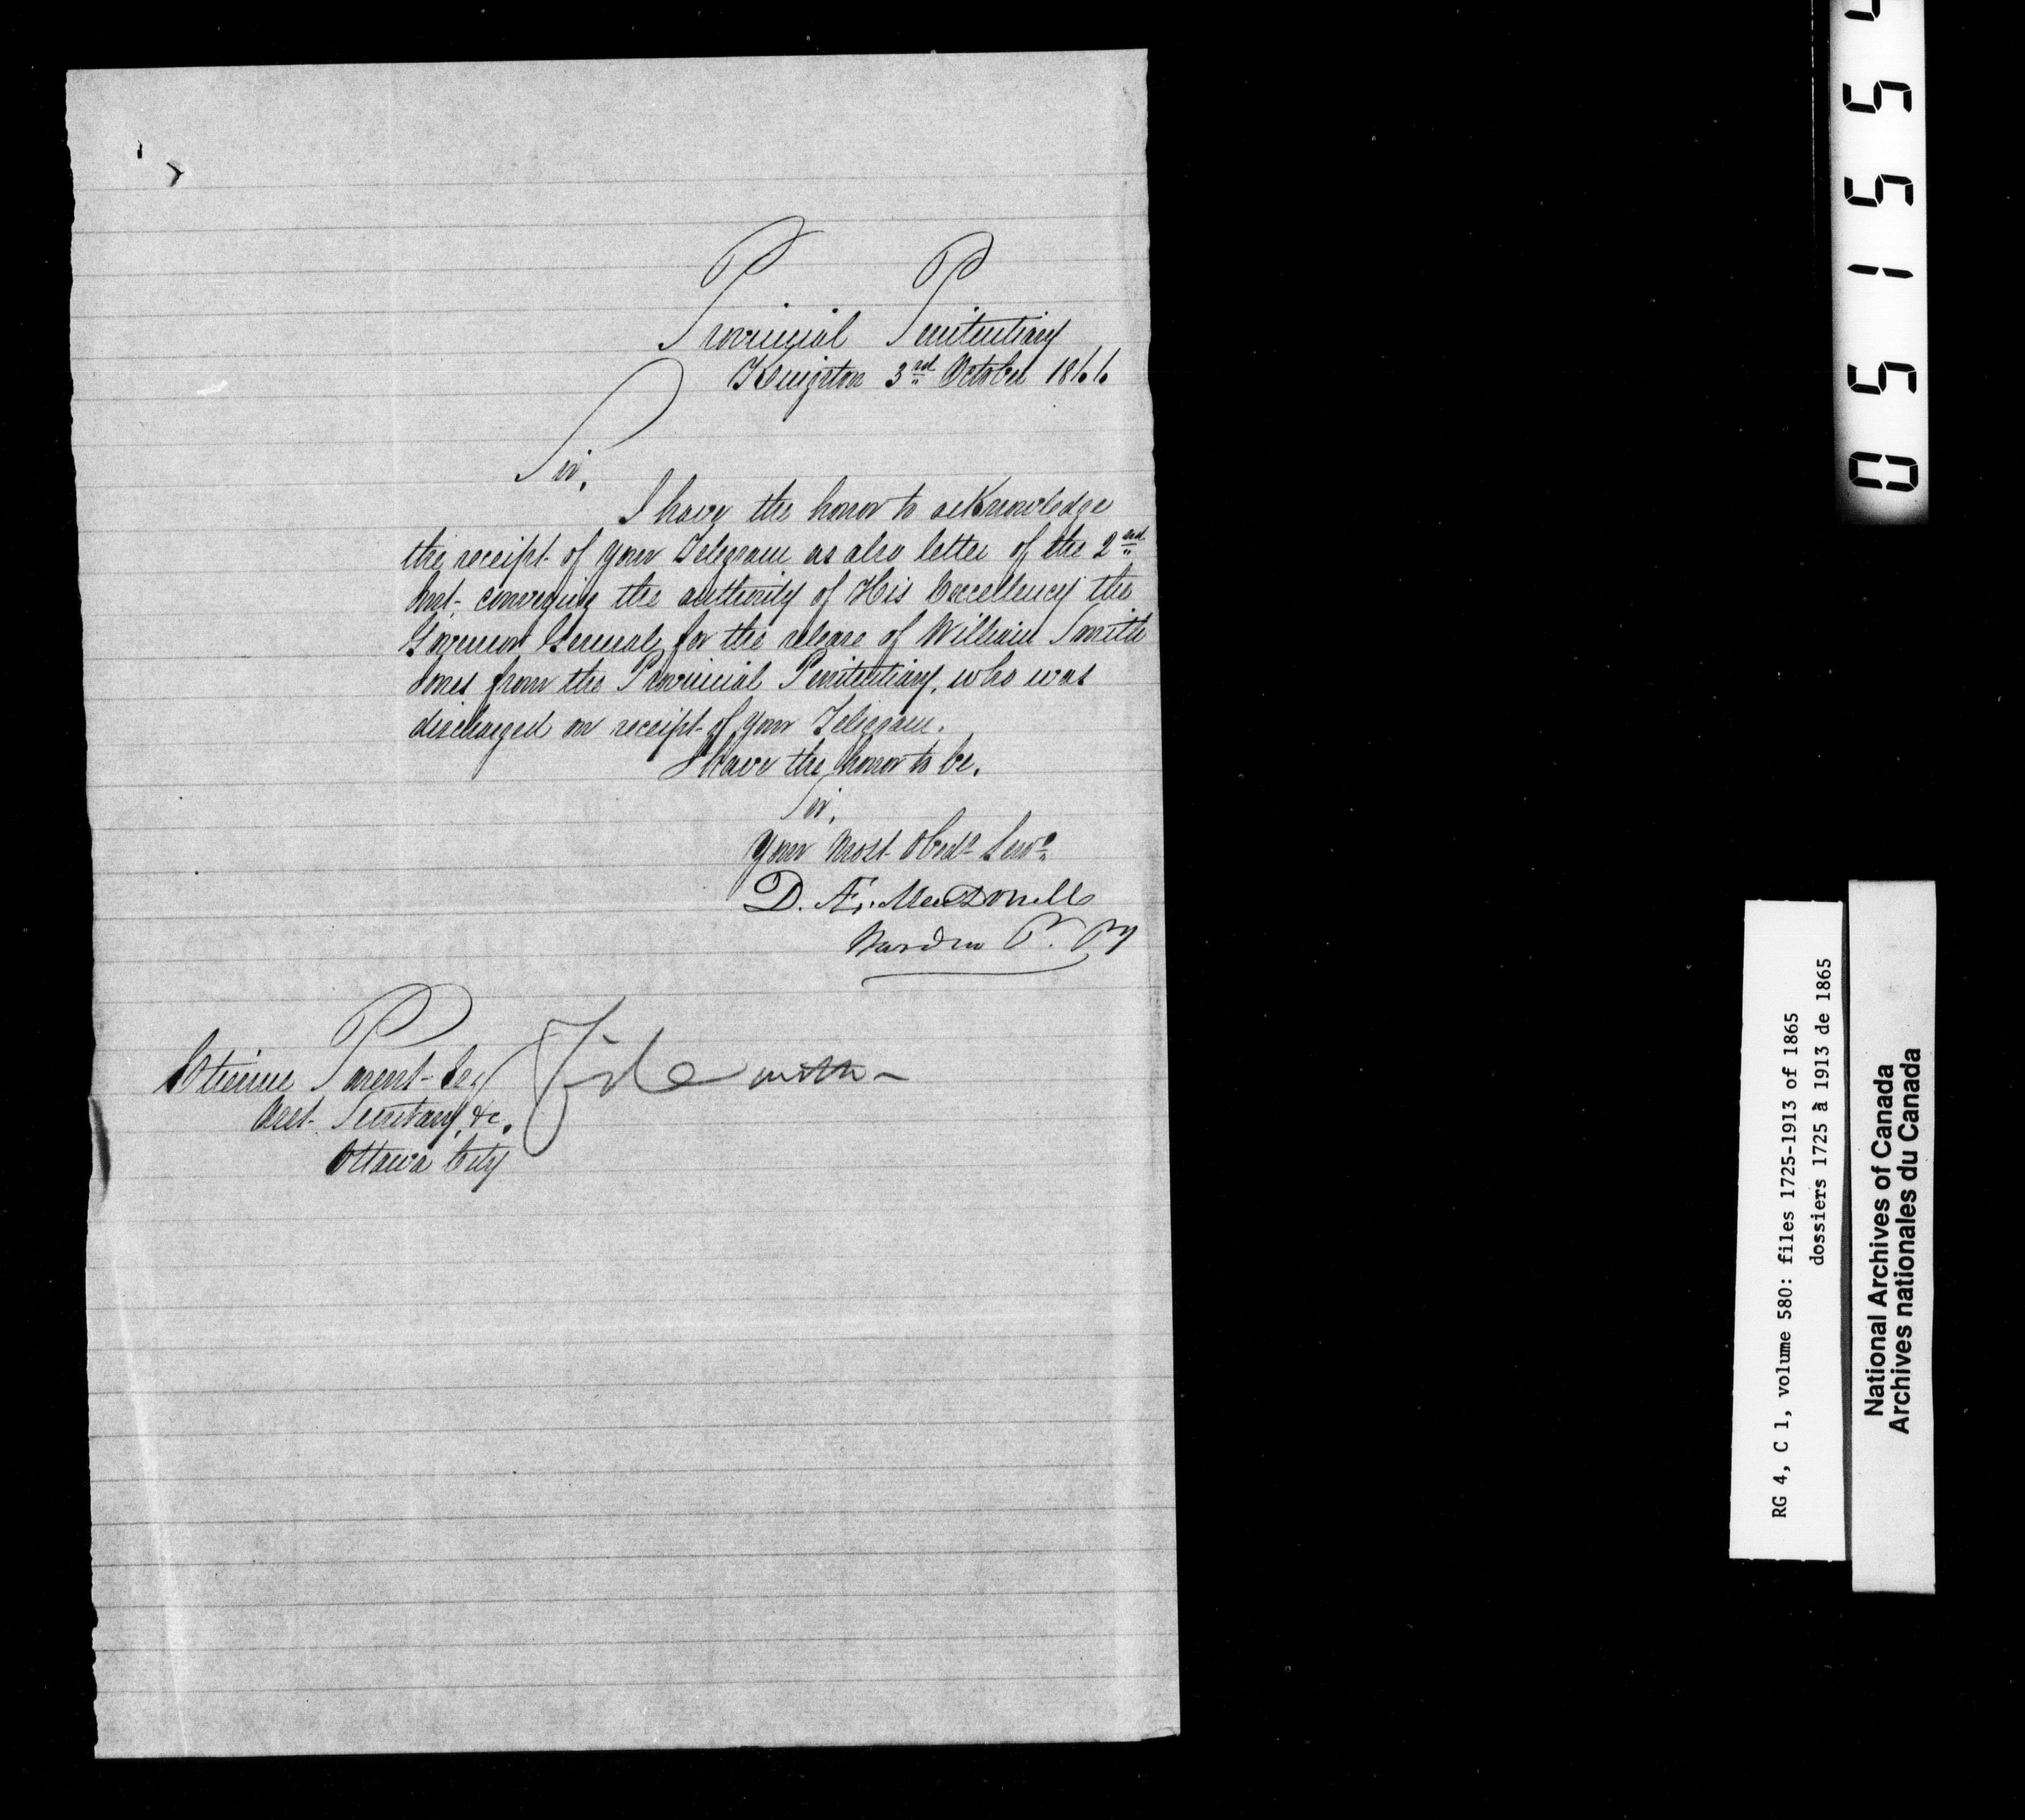 Provincial Penitentiary
Kingston 3rd October 1866
Sir,
I have the honor to acknowledge
the receipt of your Telegram as also letter of the 2nd
Inst- conveying the authority of His Excellency the
Governor General for the release of William Smith
Jones from the Provincial Penitentiary, who was
discharged on receipt of your Telegram.
I have the honor to be.
Sir,
Your Most Obedt Servt
D. Æ. MacDonell
Warden P. Py
Etienne Parent- Esq
Asst. Secretary, &c.
Ottawa City
File with
05155
RG 4, C 1, volume 580: files 1725-1913 of 1865
dossiers 1725 à 1913 de 1865
National Archives of Canada
Archives nationales du Canada